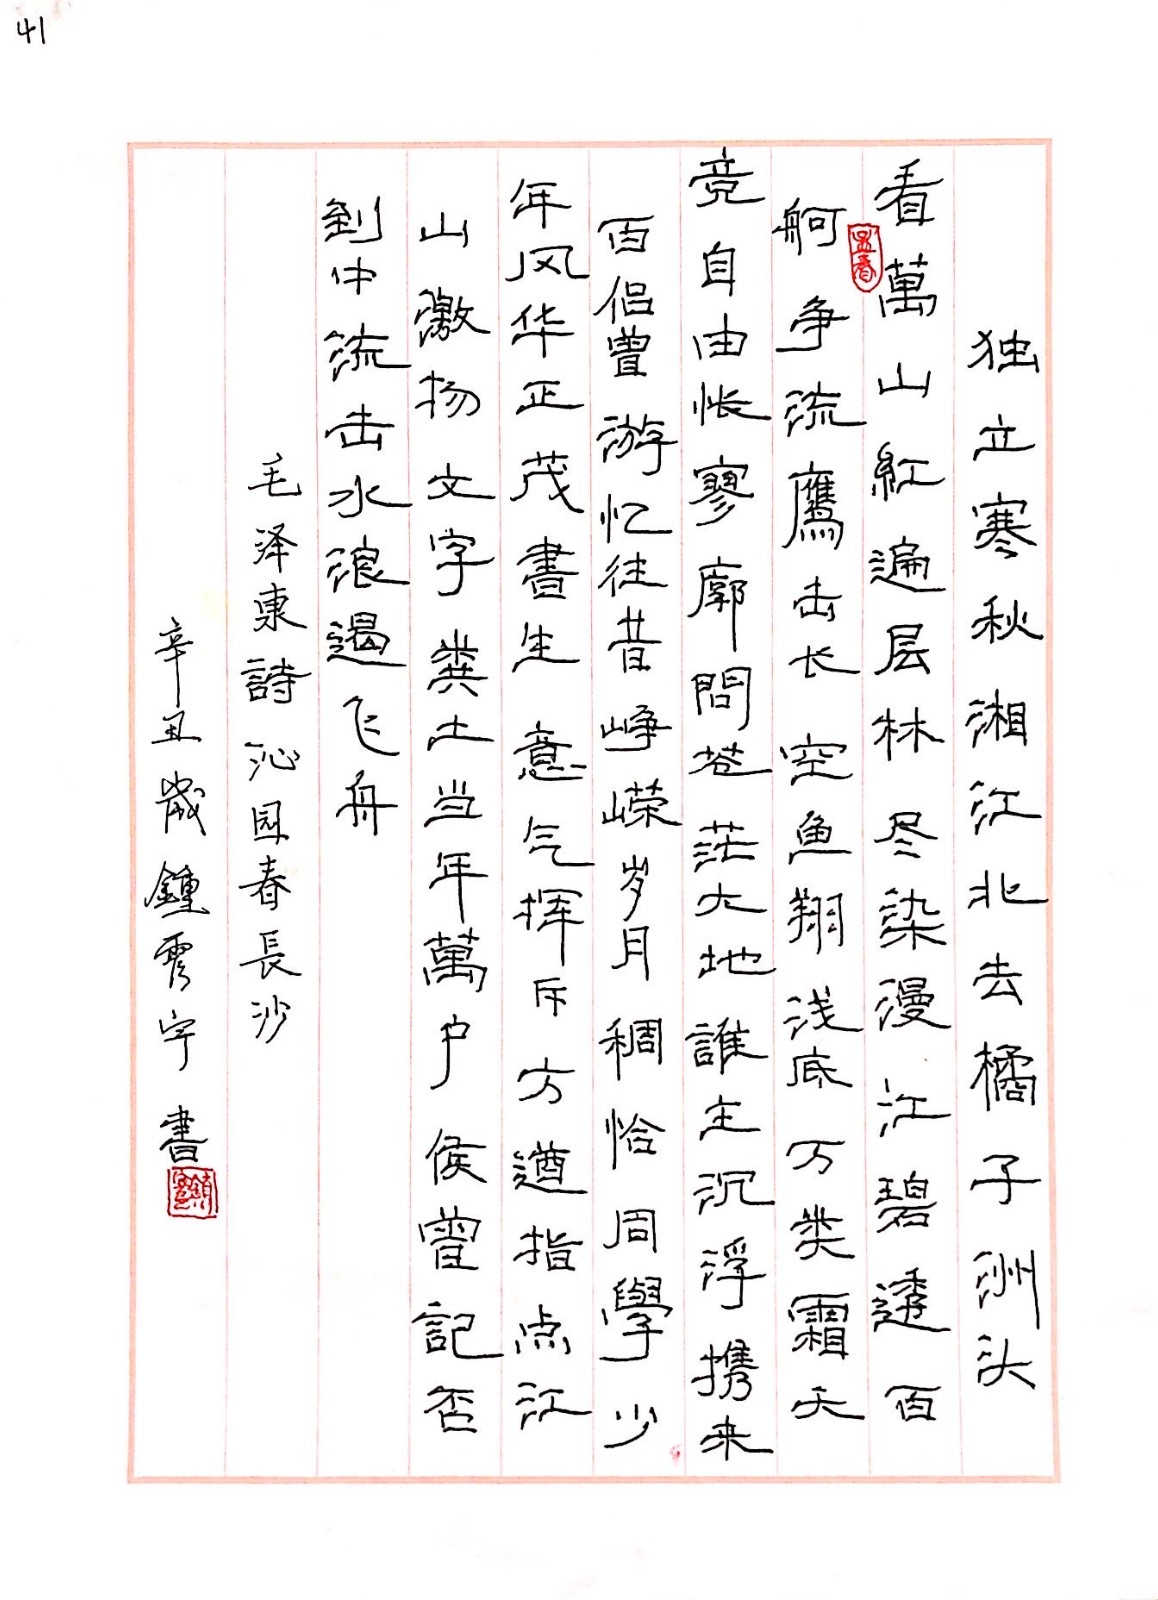 41
独立寒秋湘江北去橘子洲头
看萬山紅遍层林尽染漫江碧透百
舸争流鷹击长空鱼翔浅底万类霜天
竞自由怅寥廓問苍茫大地誰主沉浮携来
百侣曾游忆往昔峥嵘岁月稠恰同學少
年风华正茂書生意气挥斥方遒指点江
山激扬文字粪土当年萬户侯曾記否
到中流击水浪遏飞舟
毛泽東詩沁园春長沙
辛丑歲鍾雲宇書